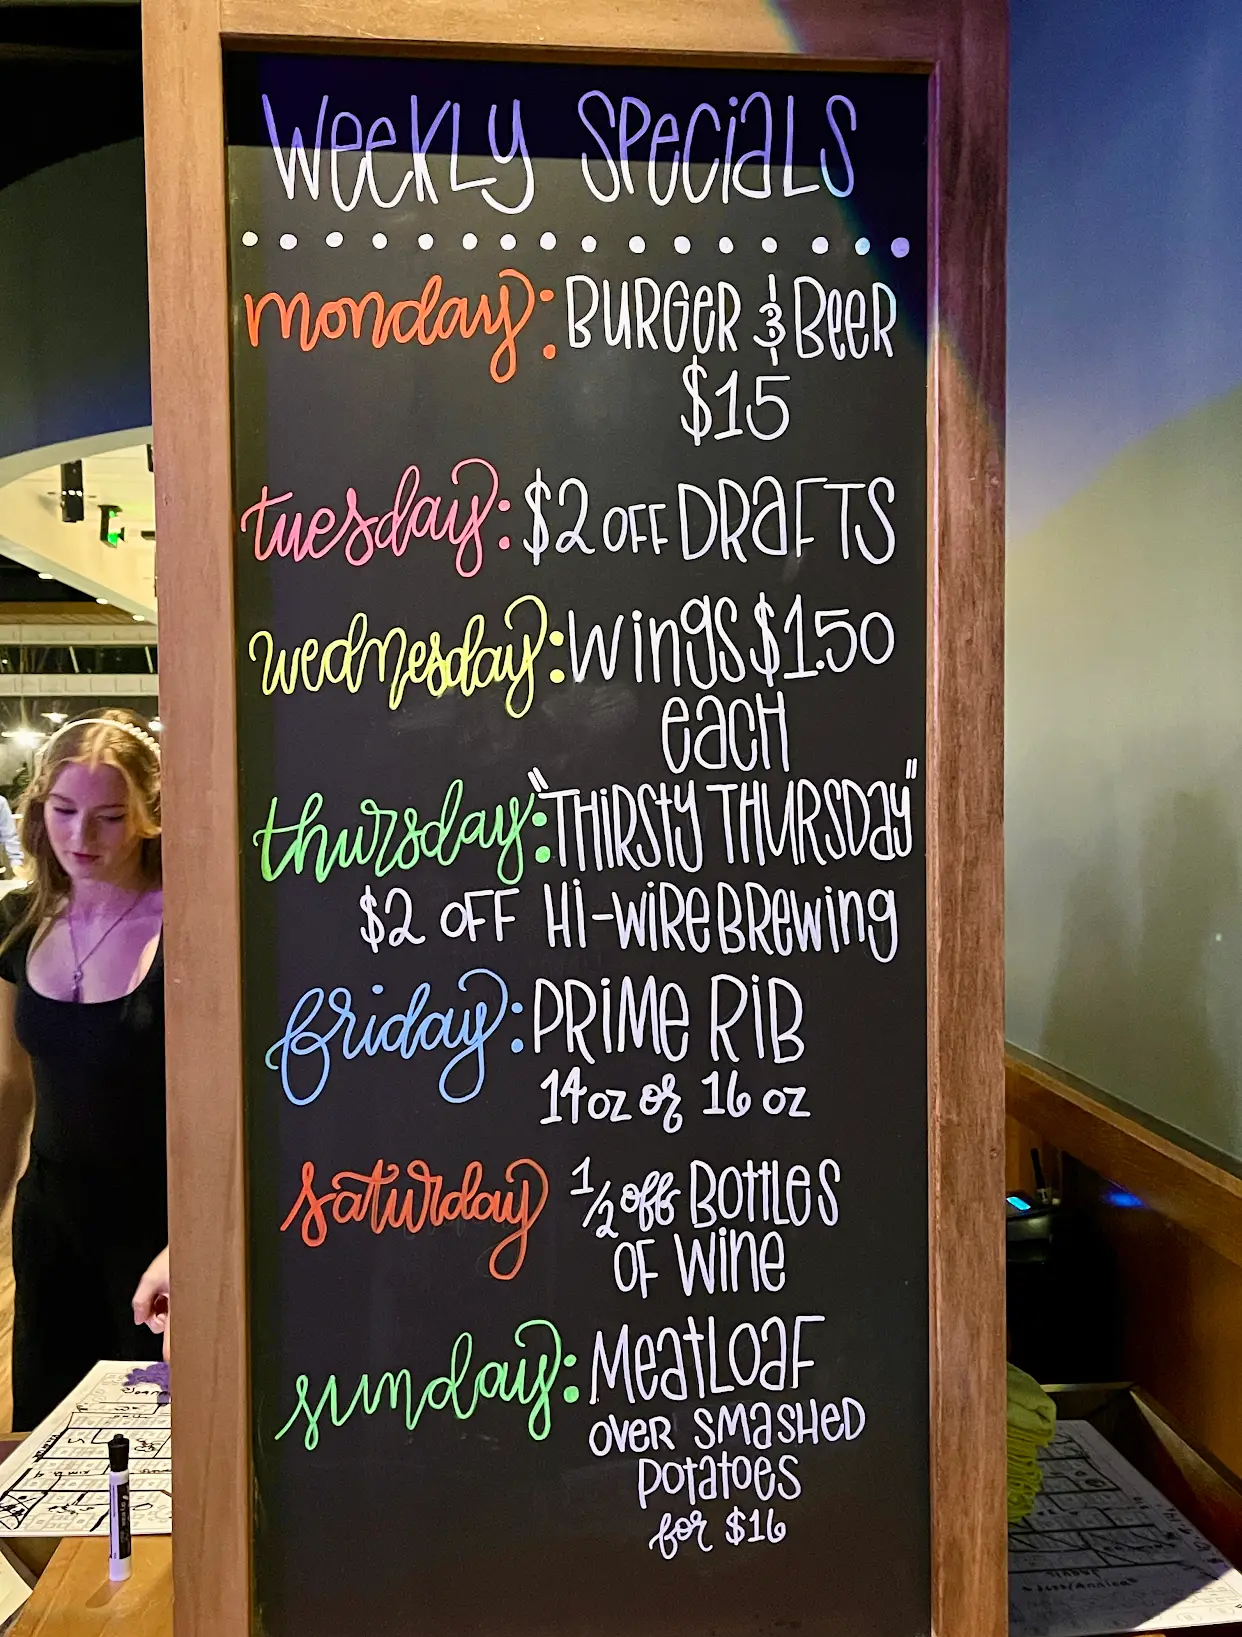 Weekly Specials
monday: Burger & Beer
$15
tuesday: $2 off Drafts
wednesday: Wings $1.50
each
thursday: "Thirsty Thursday"
$2 off Hi-Wire Brewing
friday: Prime Rib
14oz or 16 oz
saturday 1/2 off Bottles
of Wine
sunday: Meatloaf
over smashed
potatoes
for $16